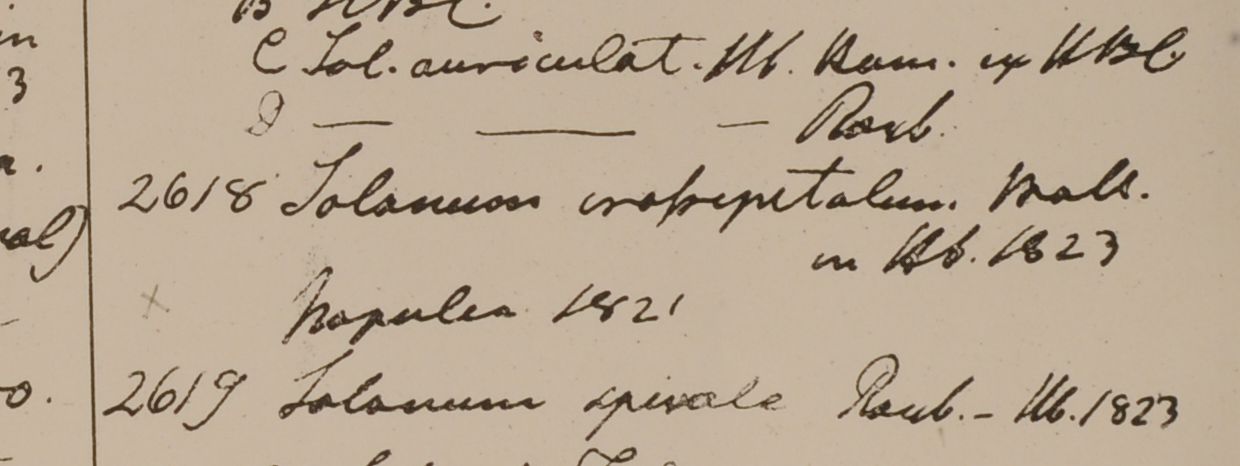 B HBC.
in
C Sol. auriculat. Hb. Ham. ex HBC
3
D — — — Roxb.
2618 Solanum crassipetalum. Wall.
in Hb. 1823
Napalea 1821
2619 Solanum spirale Roxb. - Hb. 1823